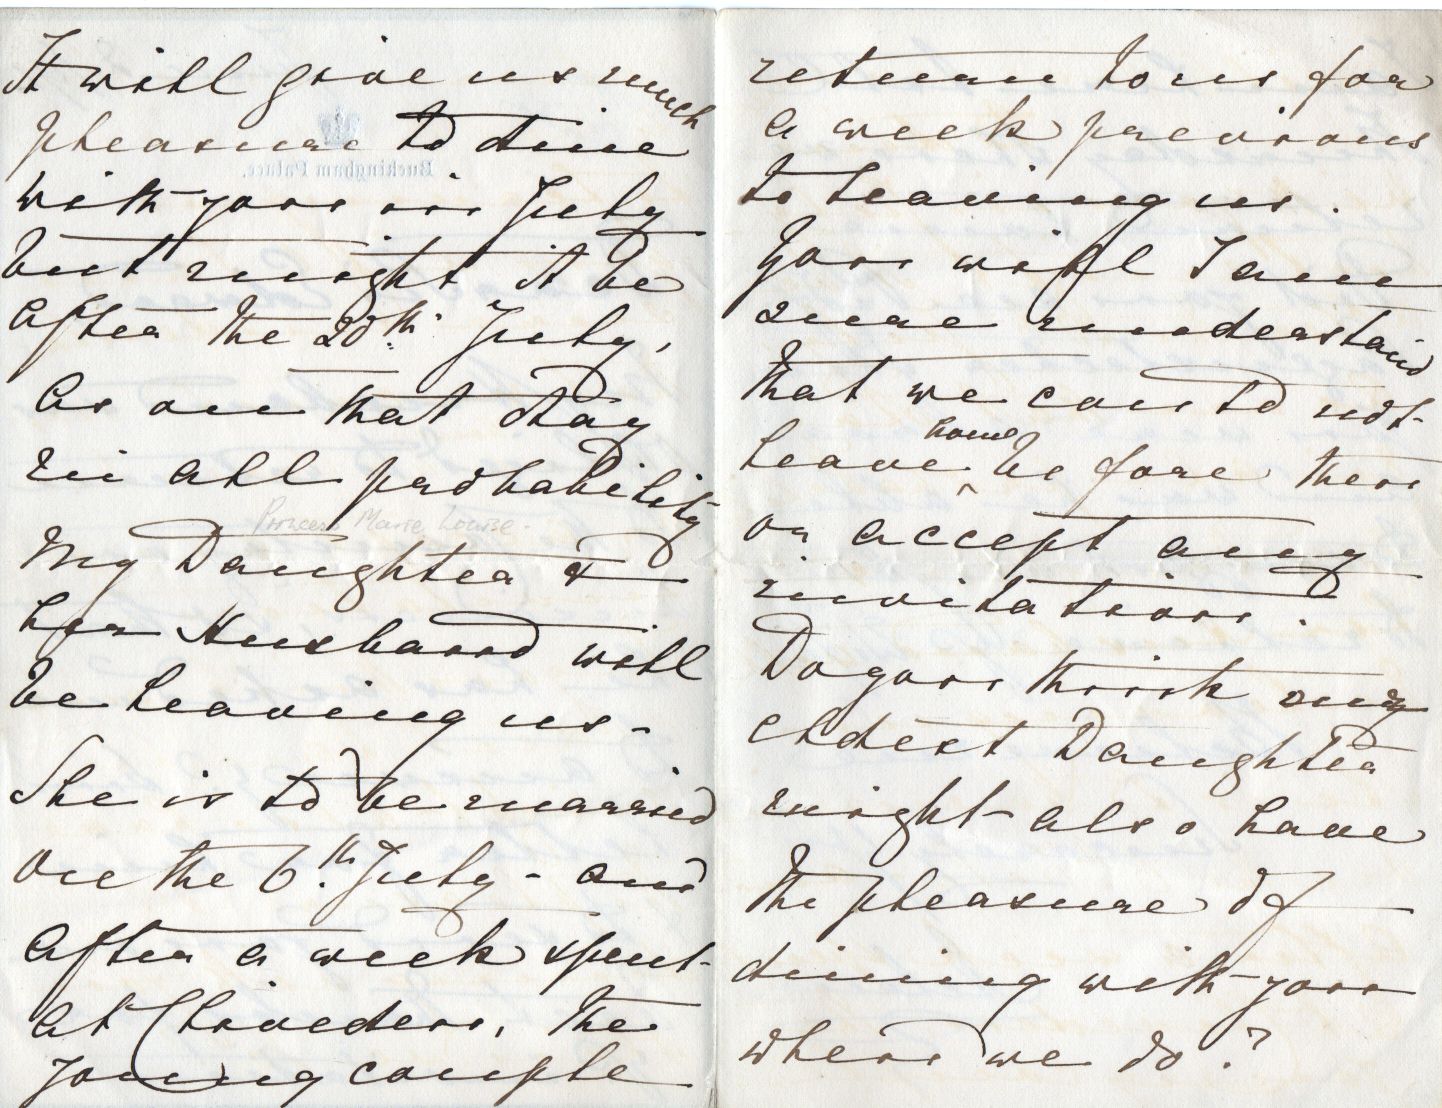 It will give us much
pleasure to dine
with you in July
but might it be
after the 20th July,
as on that day
in all probability
Princess Marie Louise.
My Daughter &
her Husband will
be leaving us.
She is to be married
on the 6th. July - and
after a week spent
at Cliveden, the
young couple
Buckingham Palace.
return to us for
a week previous
to leaving us.
You will I am
sure understand
that we could not
leave home before then
or accept any
invitation.
Do you think my
eldest Daughter
might also have
the pleasure of
dining with you
when we do?